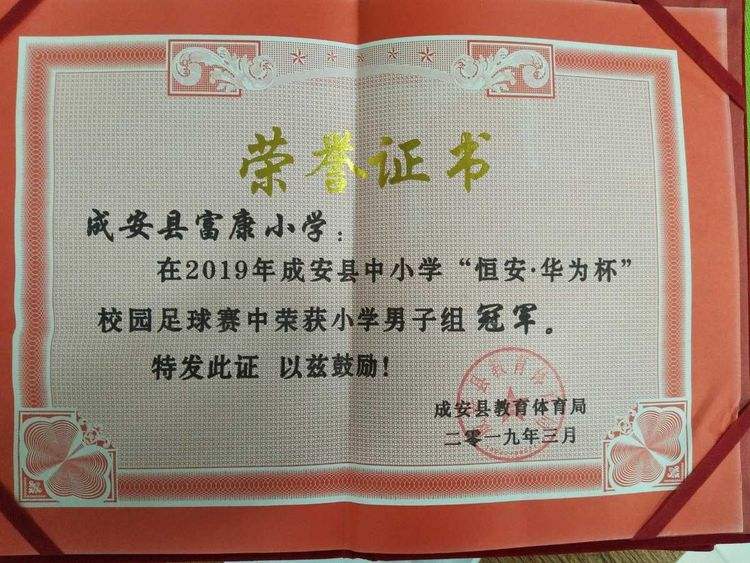 荣誉证书
成安县富康小学：
在2019年成安县中小学“恒安·华为杯”
校园足球赛中荣获小学男子组冠军。
特发此证 以兹鼓励！
成安县教育体育局
二零一九年三月